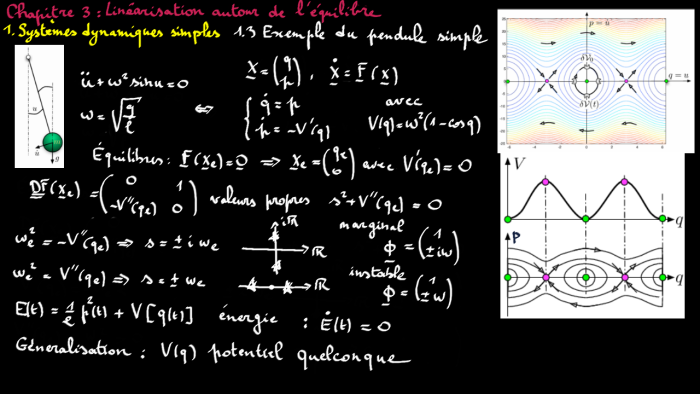 Chapitre 3 : Linéarisation autour de l'équilibre
1. Systèmes dynamiques simples 1.3 Exemple du pendule simple
ü + ω² sin u = 0
ω = √(g/ℓ)
⇔
X = (q p), Ẋ = F(X)
{ q̇ = p
ṗ = -V'(q)
avec
V(q) = ω²(1 - cos q)
Équilibres : F(Xe) = 0 ⇒ Xe = (qe 0) avec V'(qe) = 0
DF(Xe) = (0 1 -V''(qe) 0) valeurs propres s² + V''(qe) = 0
ωe² = -V''(qe) ⇒ s = ± i ωe
iR
R
marginal
Φ = (1 ±iω)
ωe² = V''(qe) ⇒ s = ± ωe
R
instable
Φ = (1 ±ω)
E(t) = 1/2 p²(t) + V[q(t)] énergie : Ė(t) = 0
Généralisation : V(q) potentiel quelconque
u
u
g
p = u̇
q = u
δV₀
δV(t)
-6 -4 -2 0 2 4 6
V
q
p
q